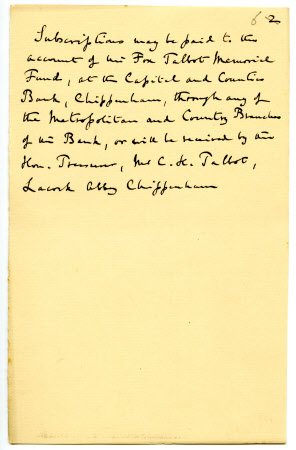 6 2
Subscriptions may be paid to the
account of the Fox Talbot Memorial
Fund, at the Capital and Counties
Bank, Chippenham, through any of
the Metropolitan and Country Branches
of the Bank, or will be received by the
Hon. Treasurer, Mr C. H. Talbot,
Lacock Abbey Chippenham